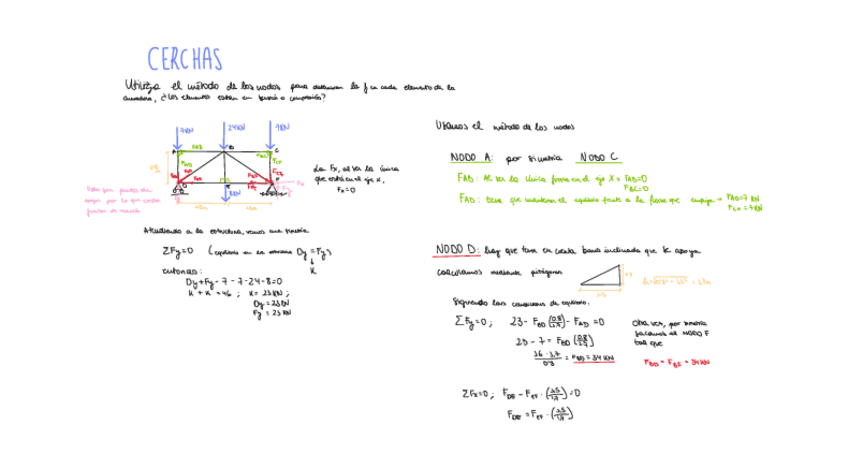 CERCHAS
Utiliza el método de los nodos para determinar la f en cada elemento de la
armadura, ¿Los elementos están en tensión o compresión?
7KN 24KN 7KN
A FAB B C
FAD
D E F
8KN
La Fx, al ser la única
que está en el eje X,
Fx=0
Atendiendo a la estructura, vemos una simetría
ΣFy=0 (equilibrio en la Dy = Fy)
K
entonces:
Dy+Fy-7-7-24-8=0
K + K = 46 ; K = 23 KN ;
Dy = 23KN
Fy = 23 KN
Usamos el método de los nodos
NODO A: por simetría NODO C
FAB: Al ser la única fuerza en el eje X = FAB=0
FBC=0
FAD: Tiene que mantener el equilibrio frente a la fuerza que empuja → FAD=7 KN
FCF=7KN
NODO D: hay que tener en cuenta barra inclinada que se apoya
calculamos mediante pitágoras
Siguiendo las condiciones de equilibrio,
ΣFy=0; 23 - FBD (0.8/1.7) - FAD = 0
23 - 7 = FBD (0.8/1.7)
16 · 1.7 / 0.8 = FBD = 34 KN
Otra vez, por simetría
sacamos el NODO F
tal que
FBD = FBF = 34 KN
ΣFx=0; FDE - FEF · (1.5/1.7) = 0
FDE = FEF · (1.5/1.7)